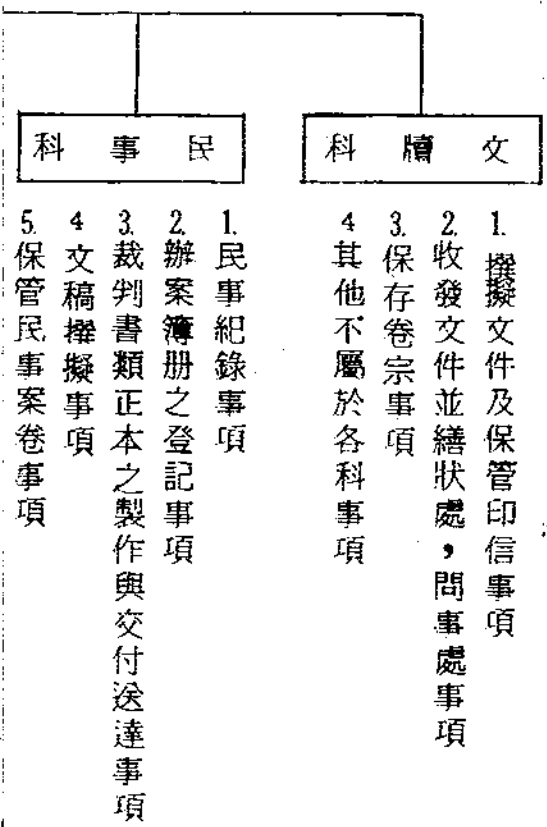 文牘科
1.撰擬文件及保管印信事項
2.收發文件並繕狀處，問事處事項
3.保存卷宗事項
4其他不屬於各科事項
民事科
1.民事紀錄事項
2.辦案簿册之登記事項
3.裁判書類正本之製作與交付送達事項
4文稿撰擬事項
5.保管民事案卷事項